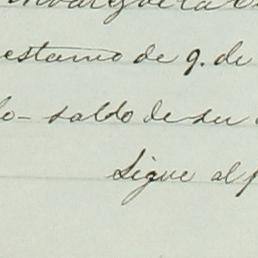 estamo de q. de
lo- saldo de su
Sigue al f